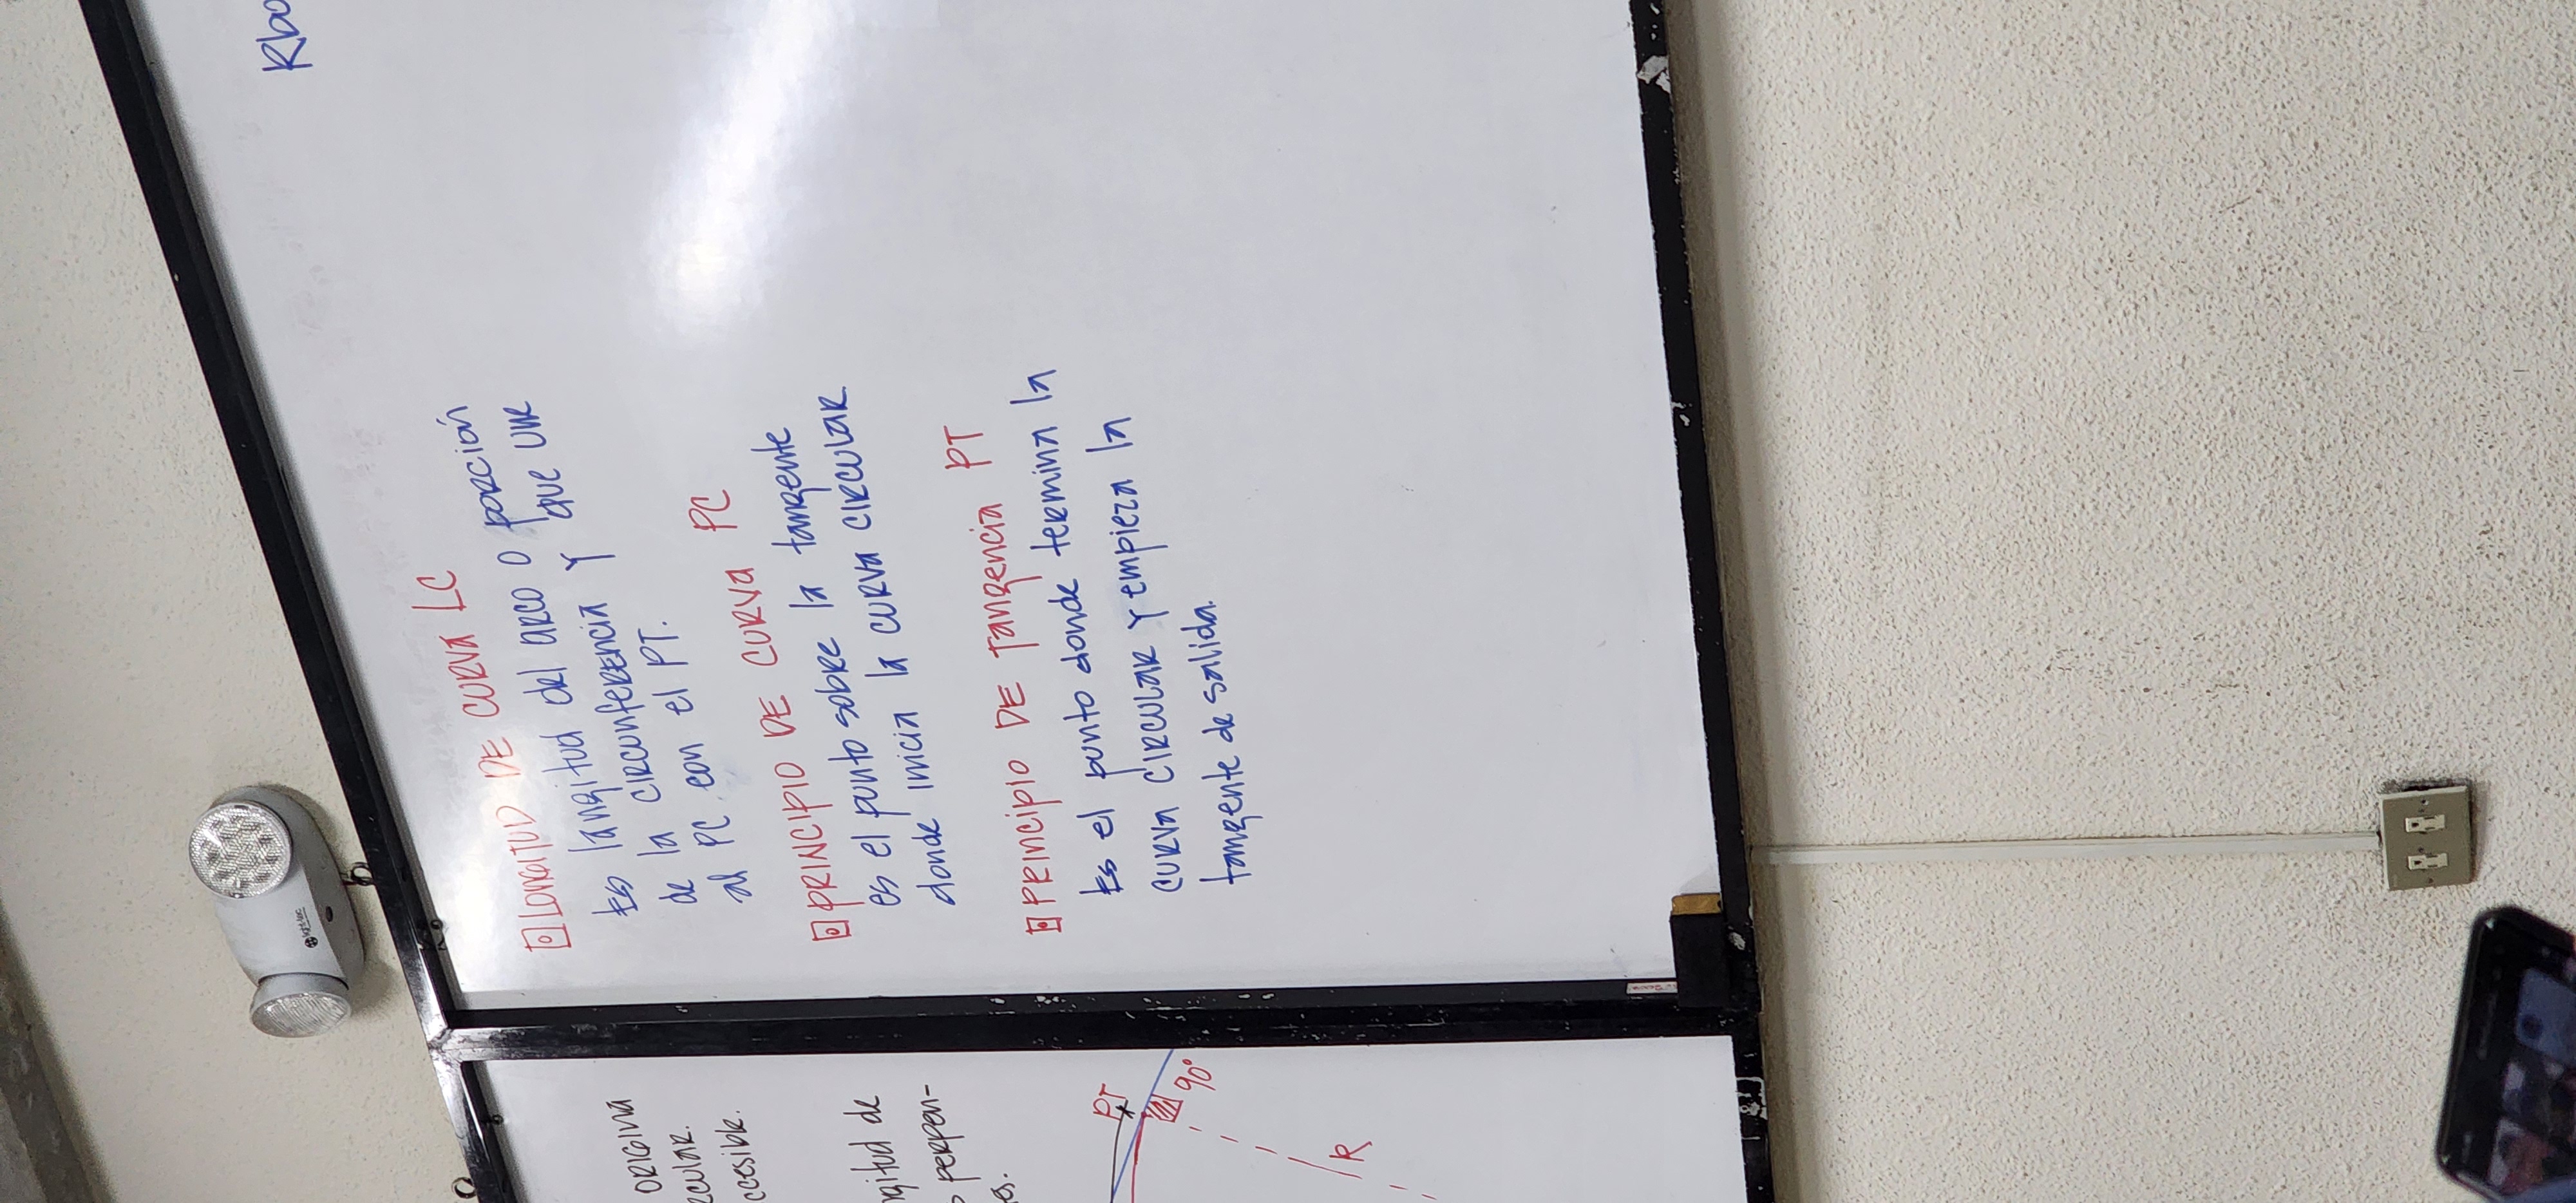 light-tec
ORIGINA
rcular.
ccesible.
ngitud de
perpen-
es.
PT
90°
R
LONGITUD DE CURVA LC
Es longitud del arco o porción
de la circunferencia y que une
al PC con el PT.
PRINCIPIO DE CURVA PC
es el punto sobre la tangente
donde inicia la curva circular
PRINCIPIO DE Tangencia PT
Es el punto donde termina la
curva circular y empieza la
tangente de salida.
Rbo